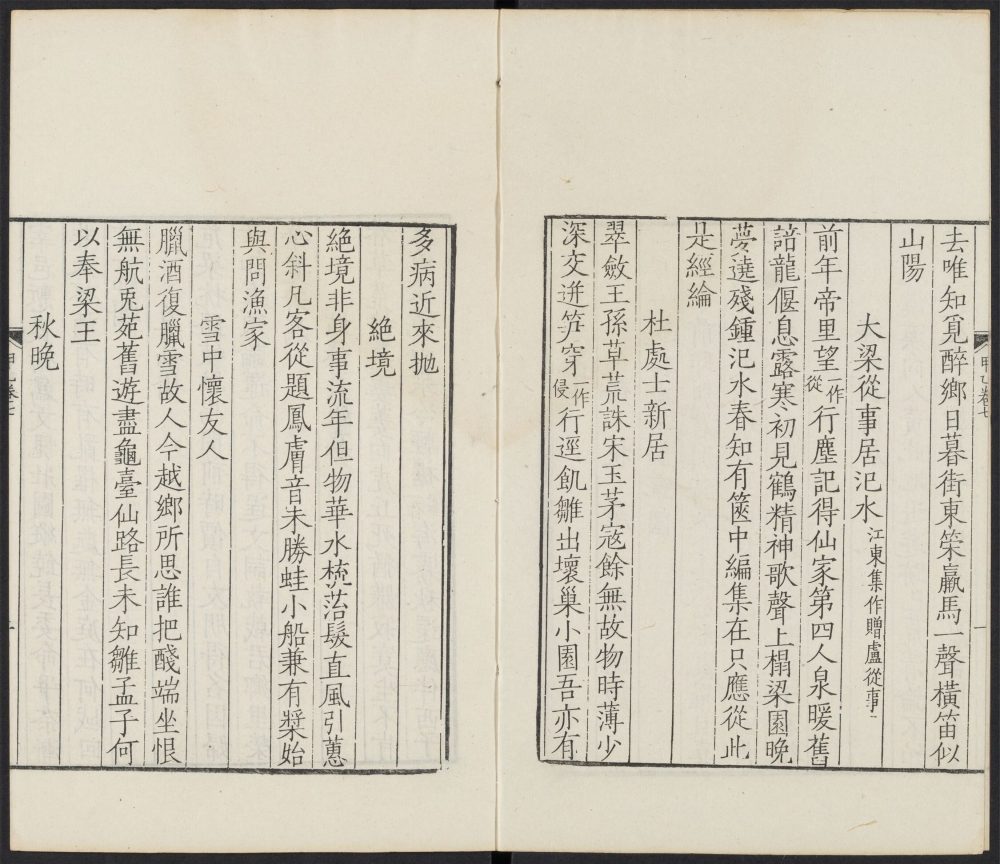 去唯知覓醉鄉日暮街東策羸馬一聲橫笛似
山陽
大梁從事居汜水江東集作贈盧從事
前年帝里望一作從行塵記得仙家第四人泉暖舊
諳龍偃息露寒初見鶴精神歌聲上榻梁園晚
夢遶殘鍾汜水春知有篋中編集在只應從此
是經綸
杜處士新居
翠斂王孫草荒誅宋玉茅寇餘無故物時薄少
深交迸笋穿一作侵行逕飢雛出壞巢小園吾亦有
多病近來拋
絕境
絕境非身事流年但物華水梳苔髮直風引蕙
心斜凡客從題鳳膚音未勝蛙小船兼有槳始
與問漁家
雪中懷友人
臘酒復臘雪故人今越鄉所思誰把醆端坐恨
無航兎苑舊遊盡龜臺仙路長未知鄒孟子何
以奉梁王
秋晚
甲乙卷七